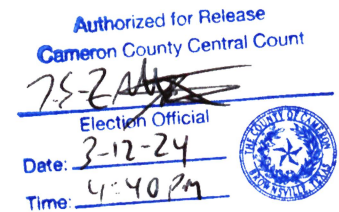 Authorized for Release
Cameron County Central Count
Election Official
Date: 3-12-24
Time: 4:40 PM
THE COUNTY OF CAMERON
BROWNSVILLE, TEXAS